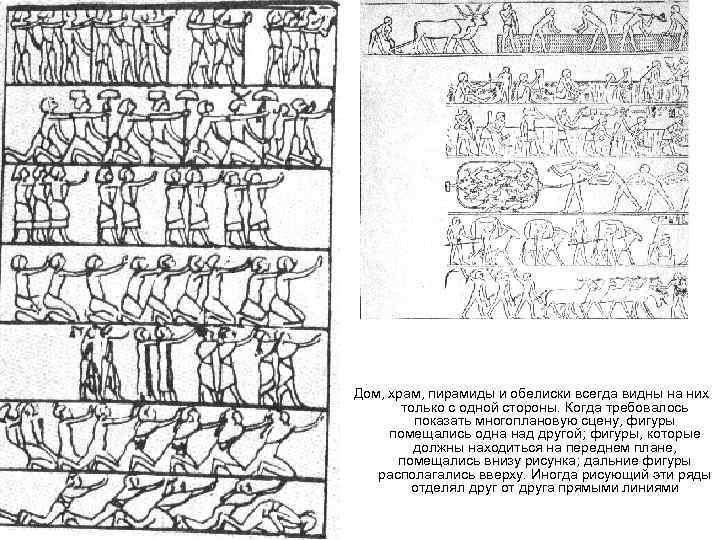 Дом, храм, пирамиды и обелиски всегда видны на них
только с одной стороны. Когда требовалось
показать многоплановую сцену, фигуры
помещались одна над другой; фигуры, которые
должны находиться на переднем плане,
помещались внизу рисунка; дальние фигуры
располагались вверху. Иногда рисующий эти ряды
отделял друг от друга прямыми линиями